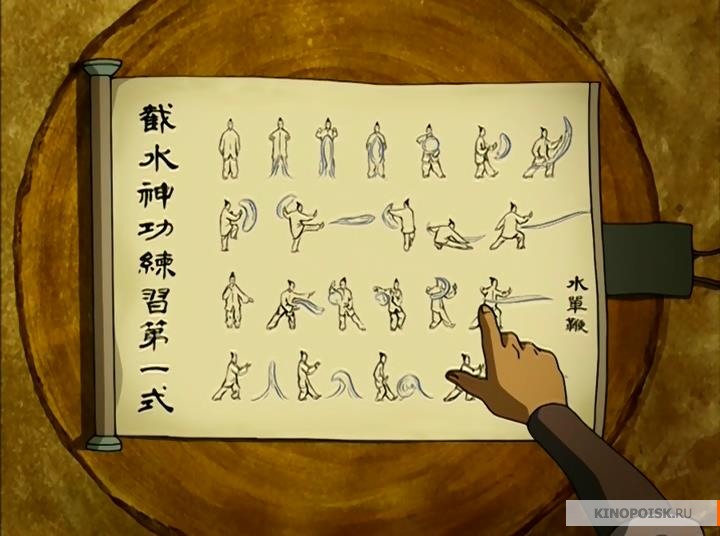 截水神功練習第一式
水單鞭
KINOPOISK.RU